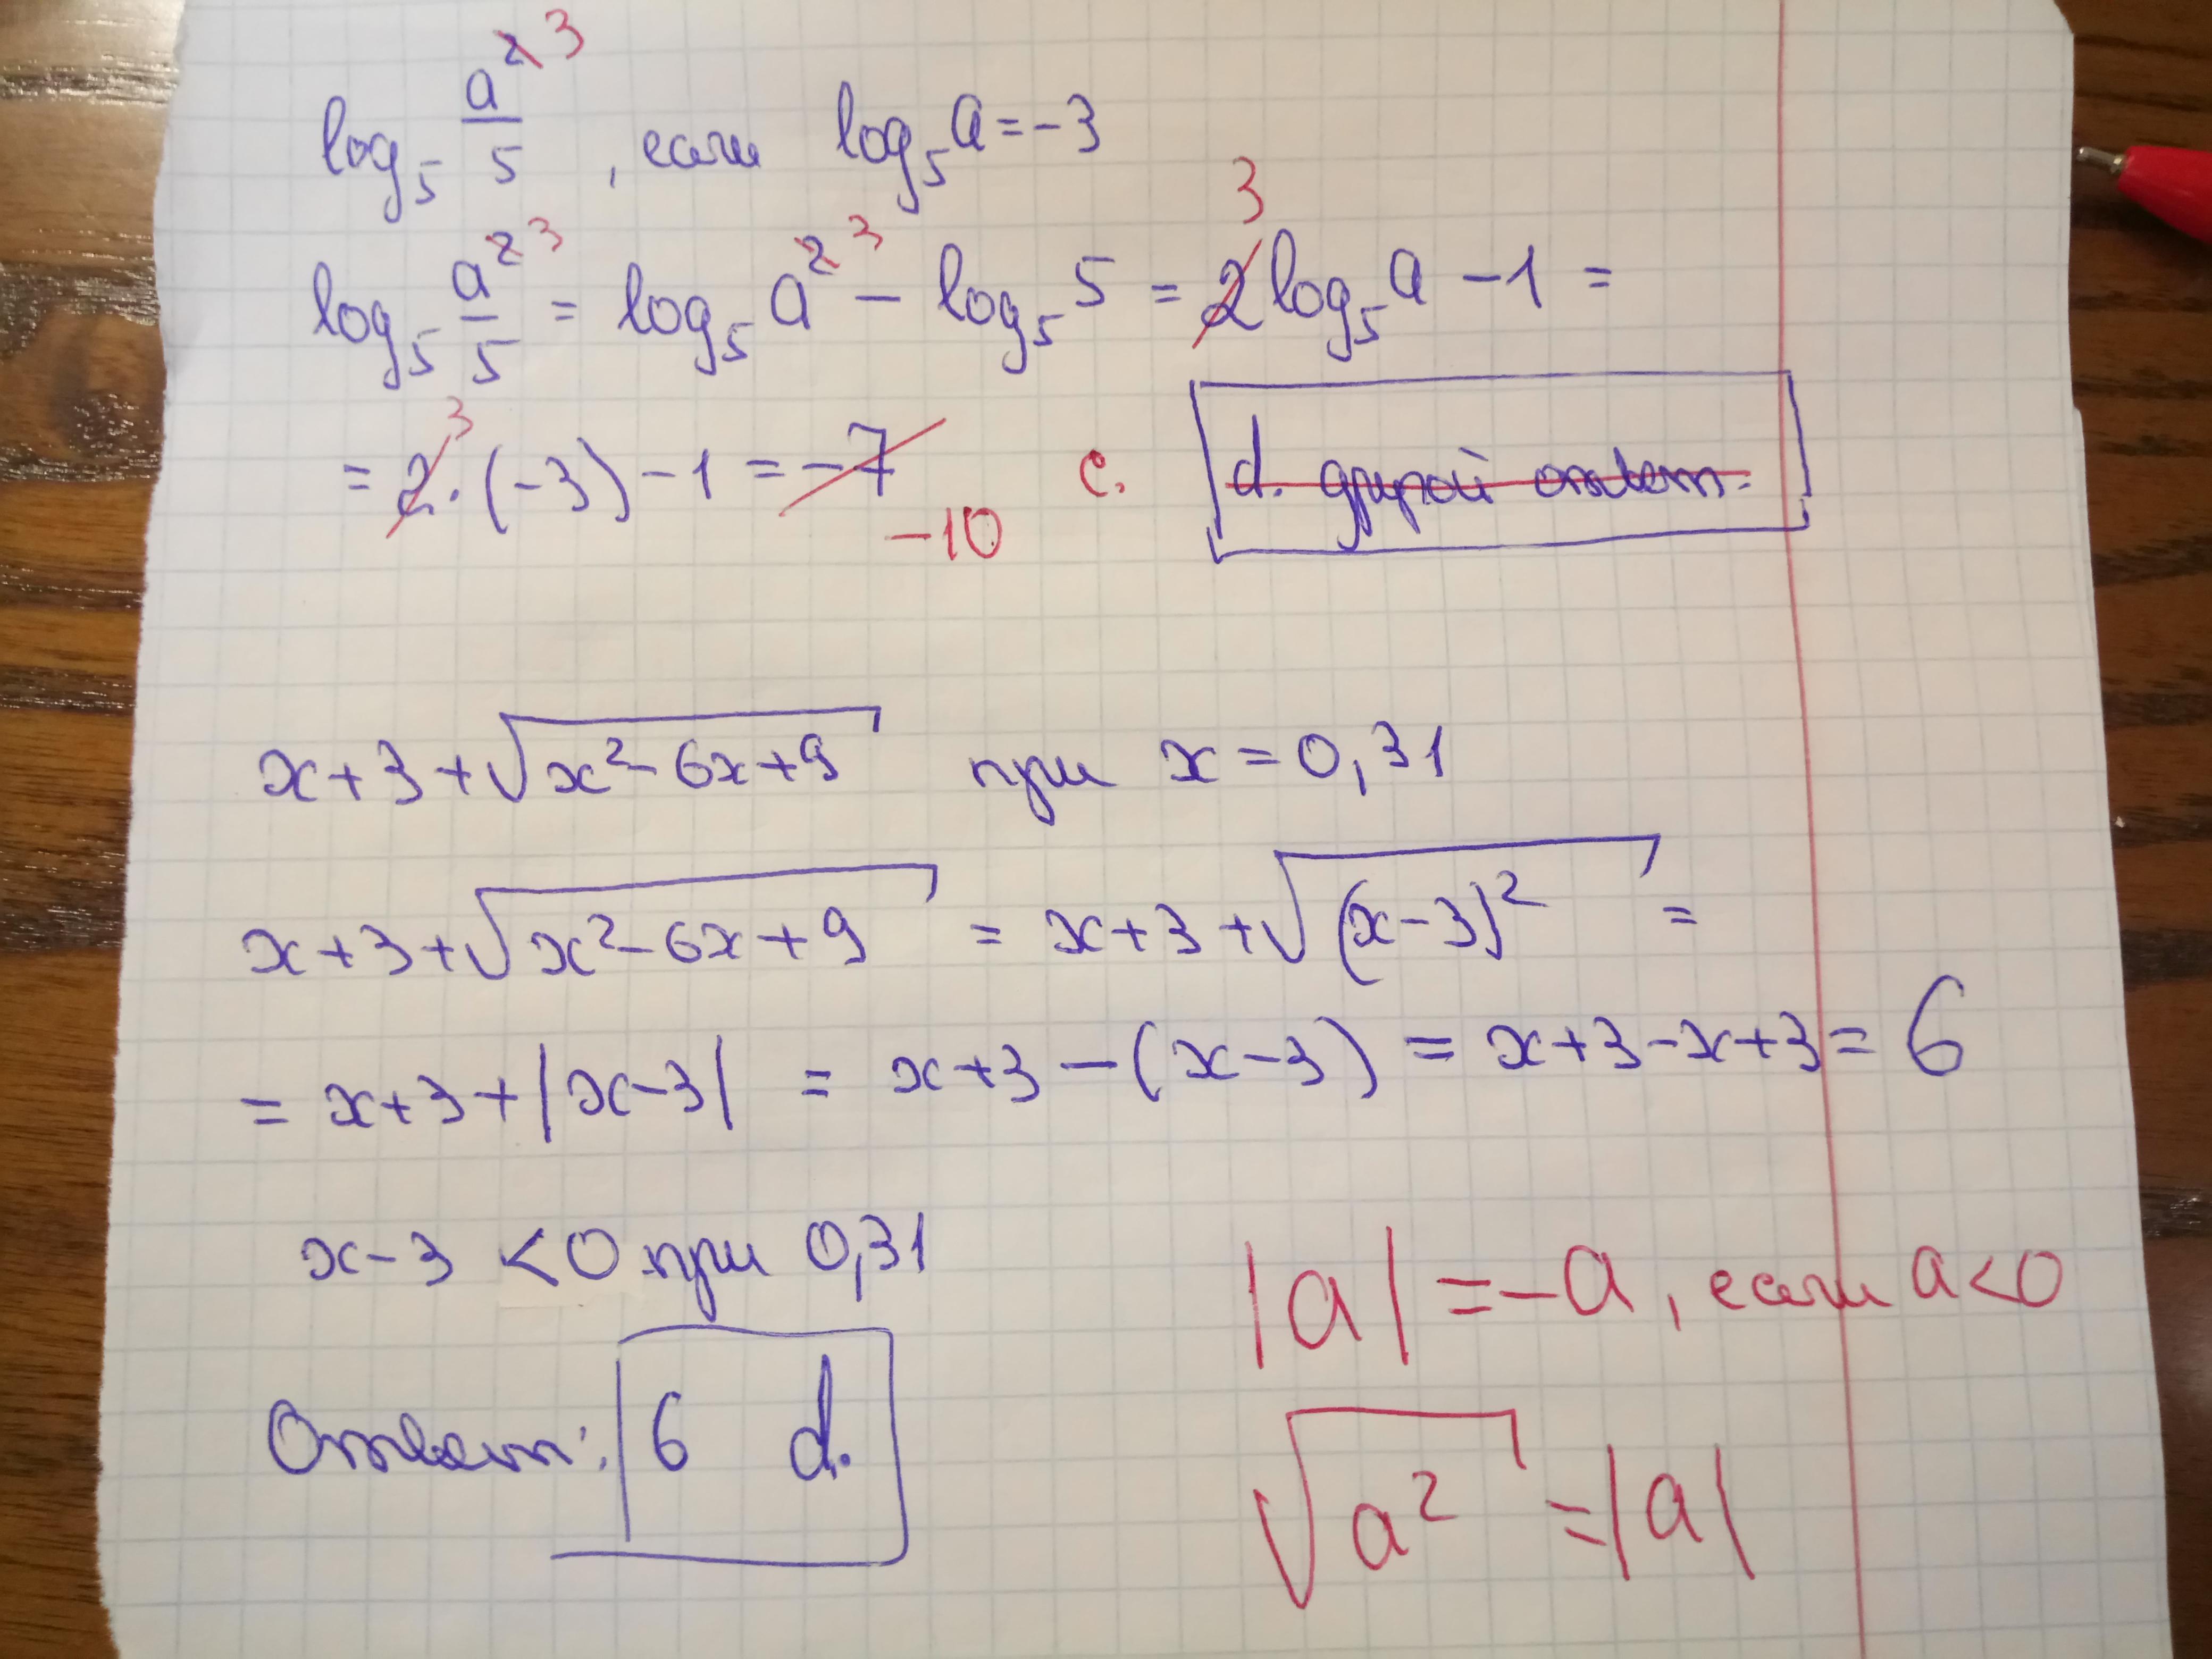 log₅ a̶²̶ ³/5 , если log₅ a = -3
3
log₅ a̶²̶ ³/5 = log₅ a̶²̶ ³ - log₅ 5 = 2̶ log₅ a - 1 =
3
= 2̶ · (-3) - 1 = -̶7̶ c. d̶.̶ ̶д̶р̶у̶г̶о̶й̶ ̶о̶т̶в̶е̶т̶.̶
-10
x+3+√(x²-6x+9) при x = 0,31
x+3+√(x²-6x+9) = x+3+√((x-3)²) =
= x+3+|x-3| = x+3-(x-3) = x+3-x+3 = 6
x-3 <0 при 0,31
|a| = -a, если a<0
Ответ: 6 d.
√(a²) = |a|